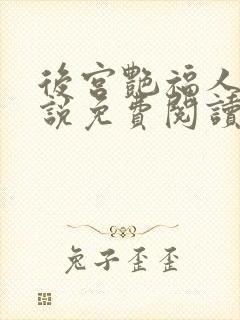 後宮艷福人
說免費閱讀
兔子歪歪